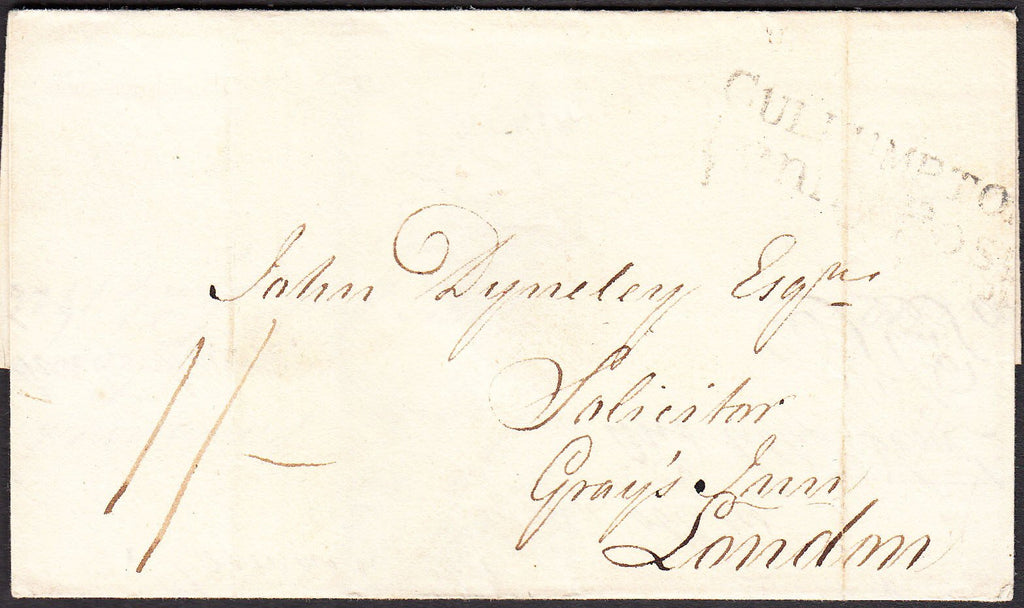 CULLUMPTON
PENNY POST
John Dyneley Esqre
Solicitor
Gray's Inn
London
1/-